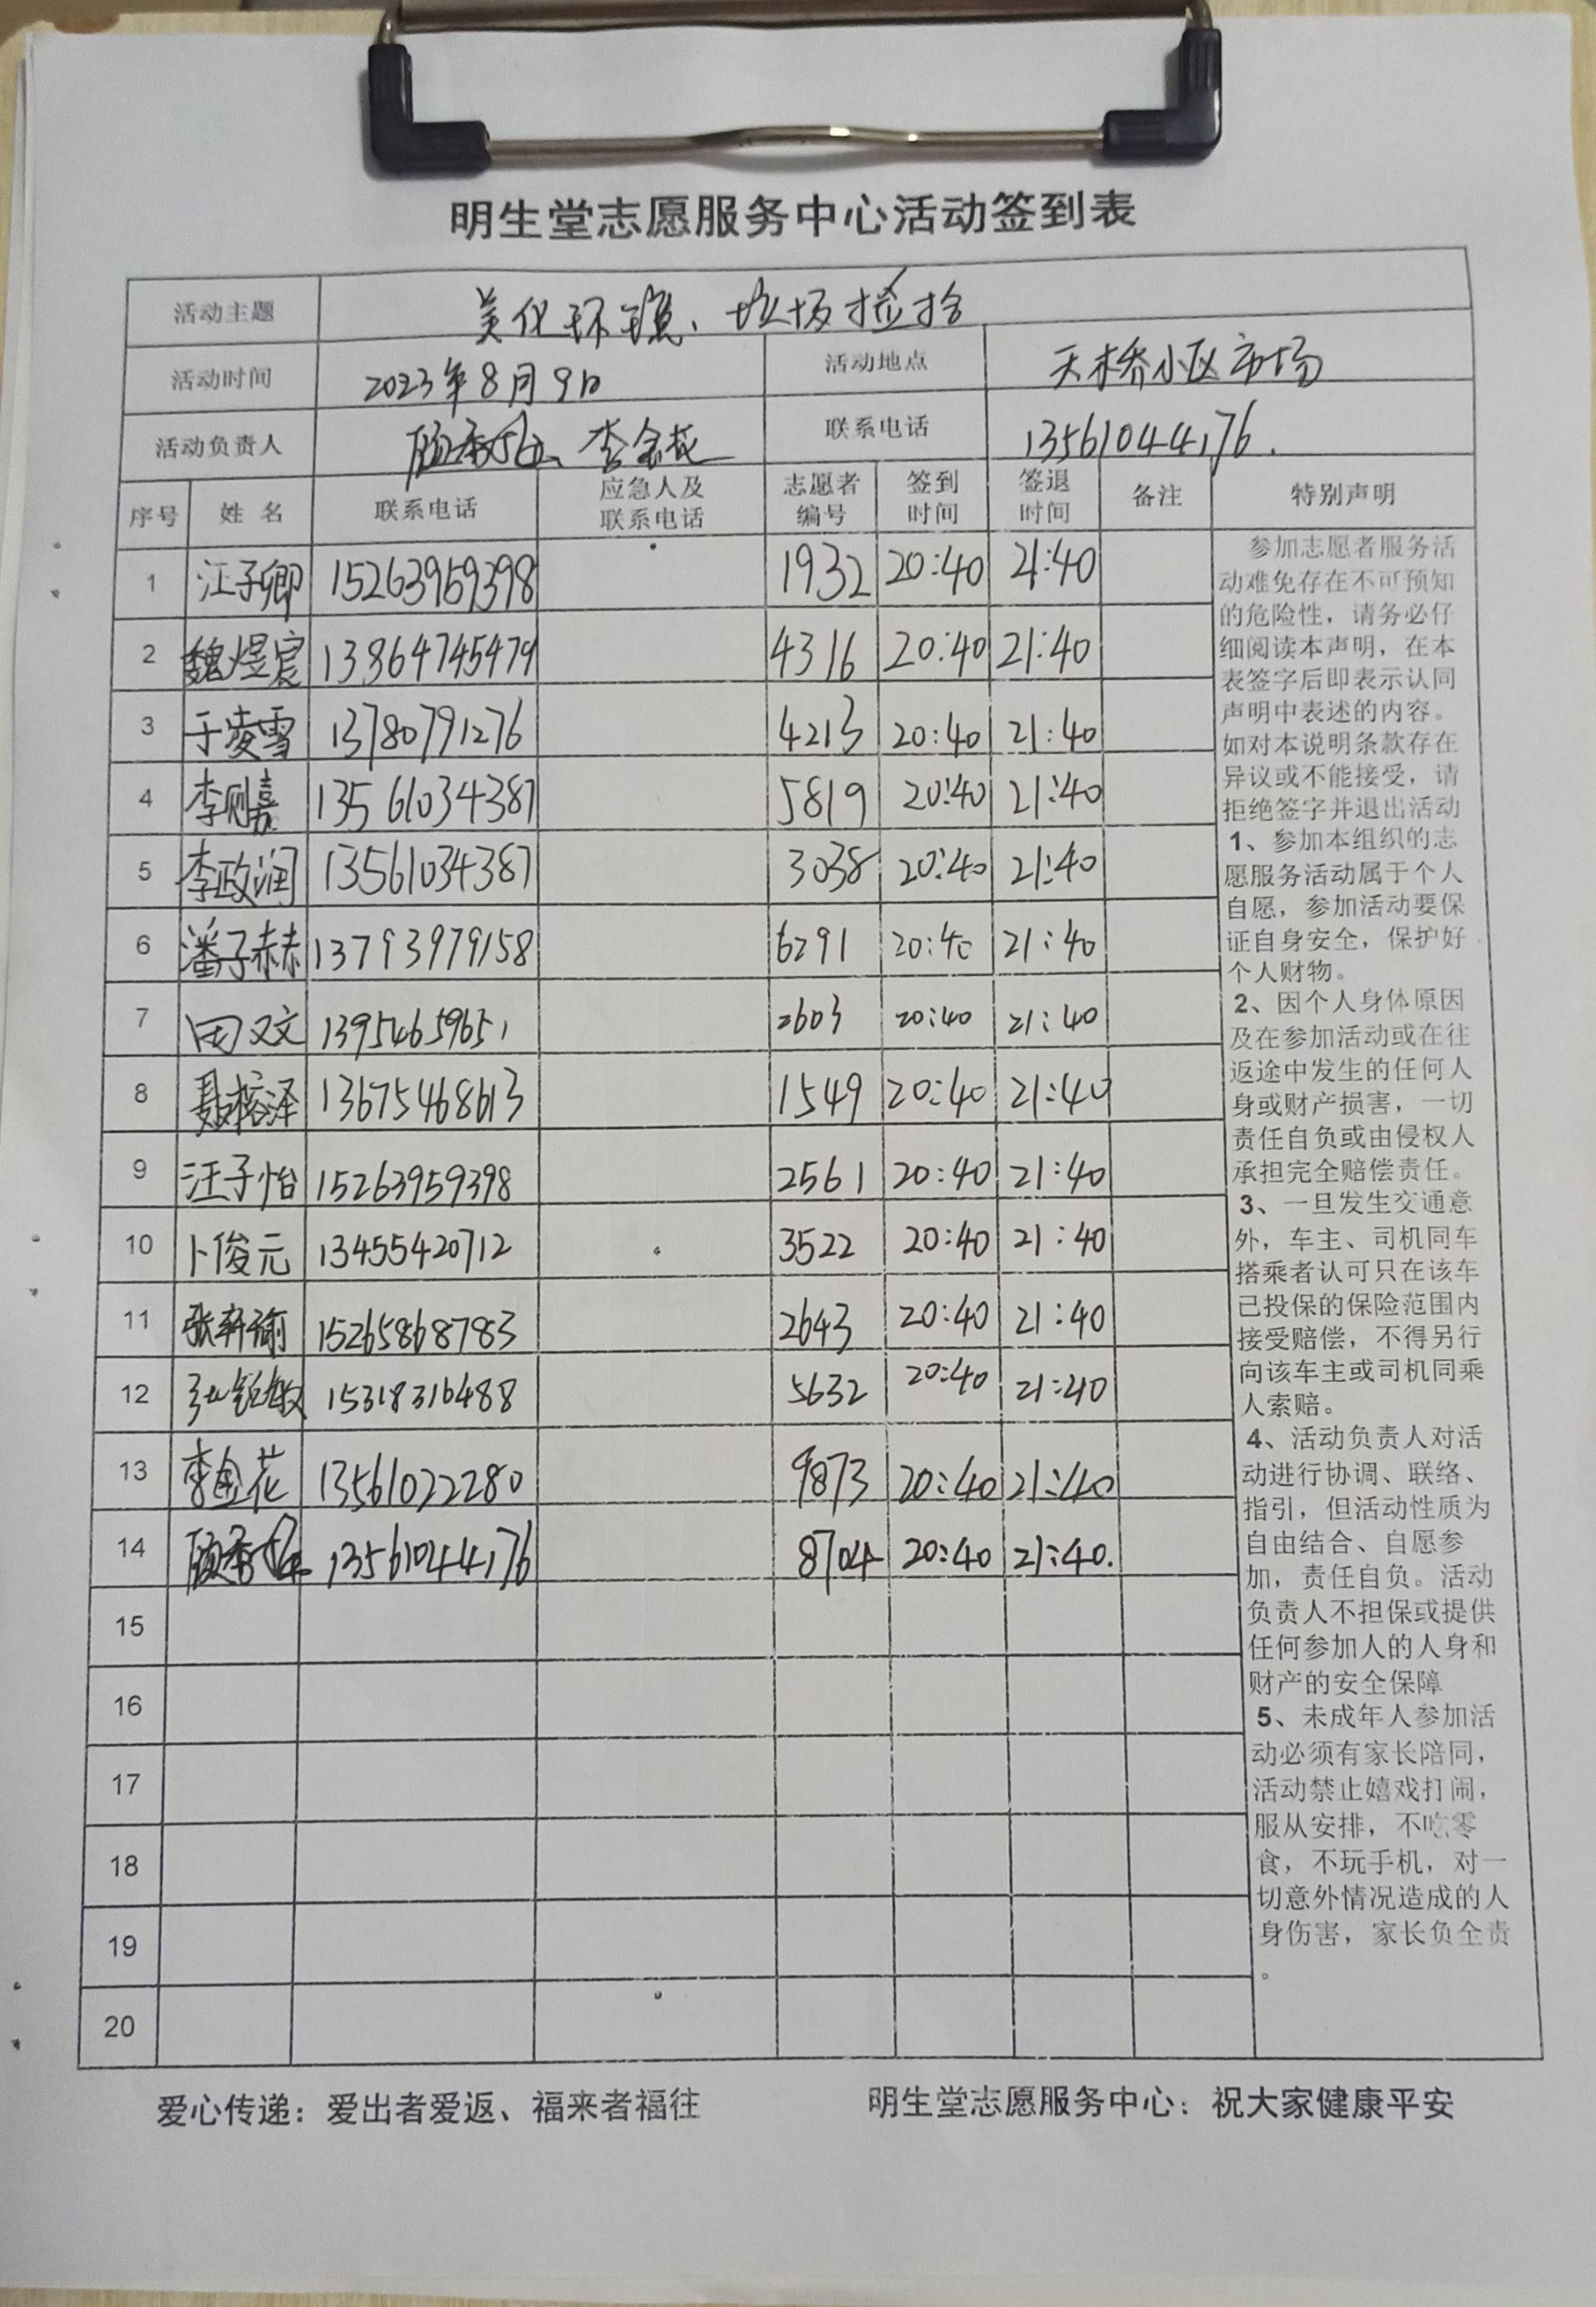 明生堂志愿服务中心活动签到表
活动主题 美化环境、垃圾捡拾
活动时间 2023年8月9日 活动地点 天桥小区市场
活动负责人 李金花 联系电话 13561044176.
序号 姓名 联系电话 应急人及联系电话 志愿者编号 签到时间 签退时间 备注 特别声明
1 汪子卿 15263959398 1932 20:40 21:40
2 魏煜宸 13864745479 4316 20:40 21:40
3 于凌雪 13780791276 4213 20:40 21:40
4 李则嘉 13561034387 5819 20:40 21:40
5 李政润 13561034387 3038 20:40 21:40
6 潘子赫 13793979158 6291 20:40 21:40
7 田又文 13954659651 2603 20:40 21:40
8 聂榕泽 13675468613 1549 20:40 21:40
9 汪子怡 15263959398 2561 20:40 21:40
10 卜俊元 13455420712 3522 20:40 21:40
11 张轩瑜 15265868783 2643 20:40 21:40
12 15318316488 5632 20:40 21:40
13 李金花 13561022280 9873 20:40 21:40
14 13561044176 8704 20:40 21:40.
15
16
17
18
19
20
参加志愿者服务活
动难免存在不可预知
的危险性，请务必仔
细阅读本声明，在本
表签字后即表示认同
声明中表述的内容。
如对本说明条款存在
异议或不能接受，请
拒绝签字并退出活动
1、参加本组织的志
愿服务活动属于个人
自愿，参加活动要保
证自身安全，保护好
个人财物。
2、因个人身体原因
及在参加活动或在往
返途中发生的任何人
身或财产损害，一切
责任自负或由侵权人
承担完全赔偿责任。
3、一旦发生交通意
外，车主、司机同车
搭乘者认可只在该车
已投保的保险范围内
接受赔偿，不得另行
向该车主或司机同乘
人索赔。
4、活动负责人对活
动进行协调、联络、
指引，但活动性质为
自由结合、自愿参
加，责任自负。活动
负责人不担保或提供
任何参加人的人身和
财产的安全保障
5、未成年人参加活
动必须有家长陪同，
活动禁止嬉戏打闹，
服从安排，不吃零
食，不玩手机，对一
切意外情况造成的人
身伤害，家长负全责
。
爱心传递：爱出者爱返、福来者福往 明生堂志愿服务中心：祝大家健康平安